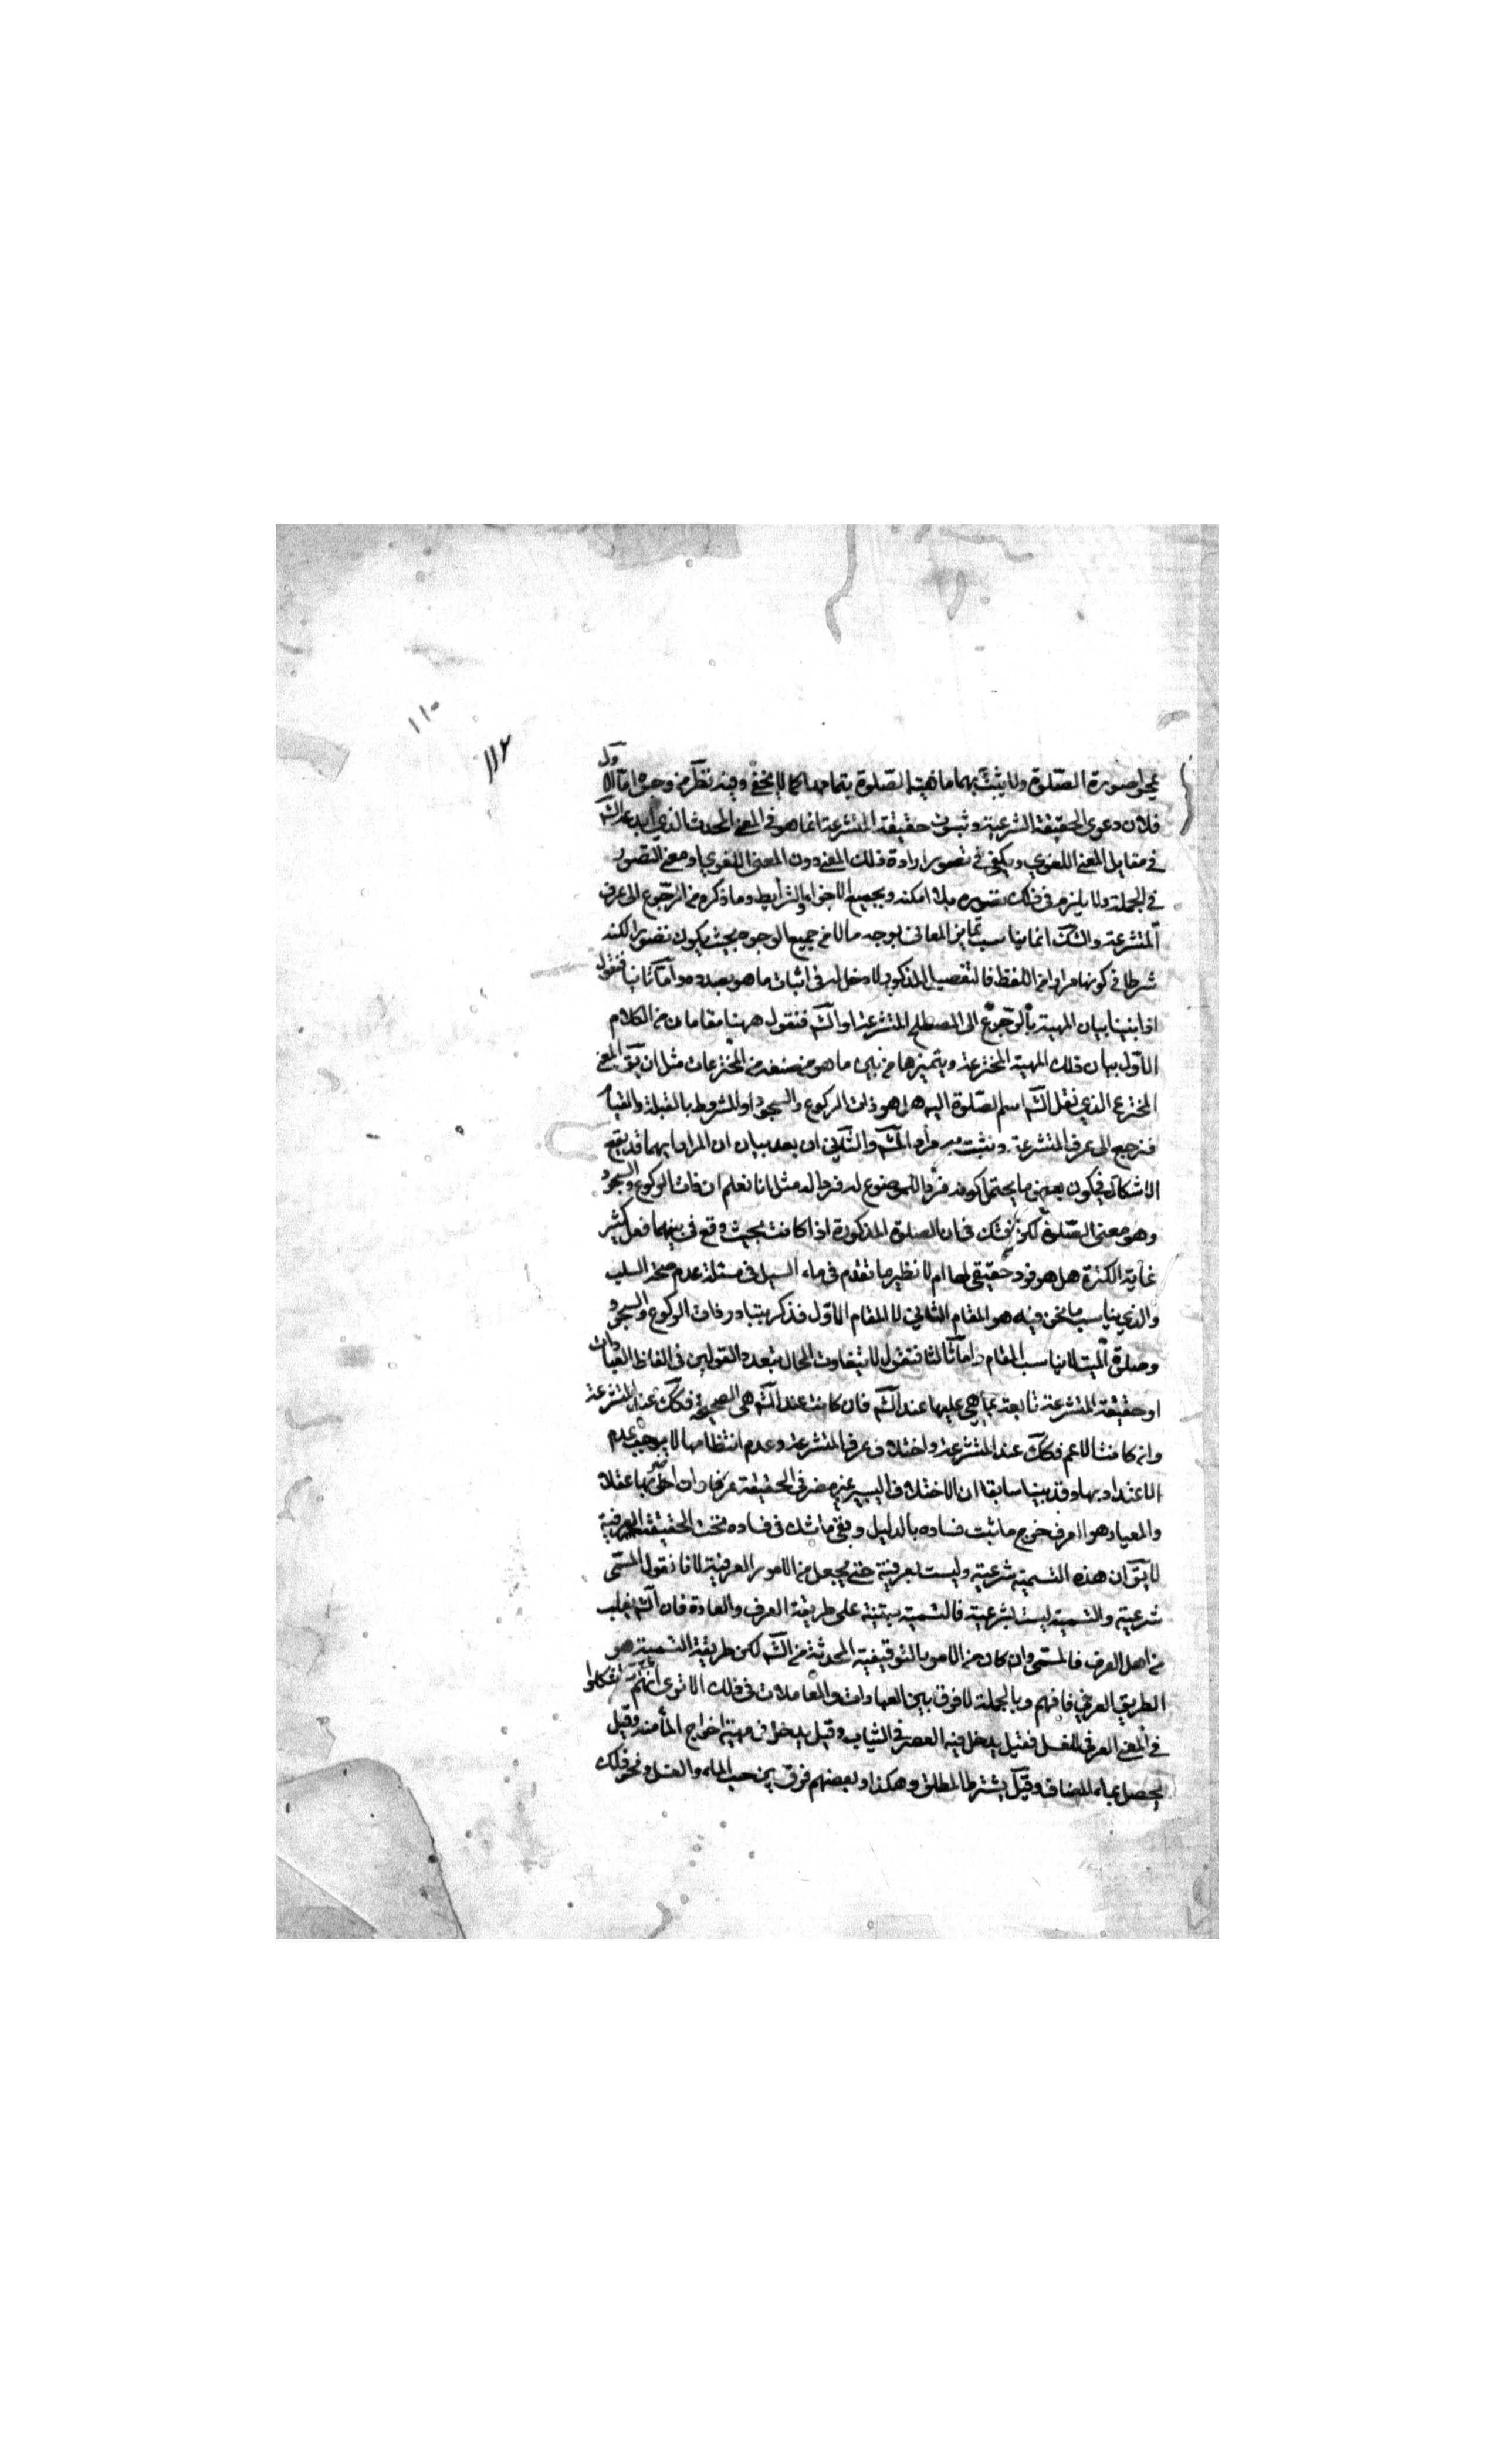 ١١٠
١١٢
يمحوا صورة الصّلوة ولا يثبت بهما ماهية الصّلوة بتمامها كما لا يخفى وفيه نظر من وجوه امّا الاول
فلان دعوى الحقيقة الشرعية وثبوت حقيقة المتشرعة انما هو في المعنى المحدث الذي ابدعه الشّه
في مقابل المعنى اللغوي ويكفي في تصور ارادة ذلك المعنى دون المعنى اللغوي او معنى التصور
في الجملة ولا يلزم في ذلك تصوره بالكنه وبجميع الاجزاء والشرايط وما ذكره من الرّجوع الى عرف
المتشرعة والشكّ انما يناسب تمايز المعاني بوجه ما لا من جميع الوجوه بحيث يكون تصور الكنه
شرطا في كونها مرادا من اللفظ فالتفصيل المذكور لا دخل له في اثبات ما هو بصدده وامّا ثانيا فنقول
اذا بنينا بيان المهية بالرّجوع الى المصطلح المتشرعة او الشّه فنقول ههنا مقامان من الكلام
الاوّل بيان تلك المهية المخترعة وتميزها من بين ما هو من صنفه من المخترعات مثل ان يقّ المعنى
المخترع الذي نقل الشّه اسم الصّلوة اليه هل هو ذات الركوع والسجود او المشروط بالقبلة والقيام
فنرجع الى عرف المتشرعة ونثبت به مراد الشّه والثّاني ان بعد بيان ان المراد ايهما قد يقع
الاشكال فيكون بعض ما يحتمل كونه فردا للموضوع له فردا له مثل انا نعلم ان ذات الركوع والسجود
وهو معنى الصّلوة لكن نشك في ان الصلوة المذكورة اذا كانت بحيث وقع في بينهما فعل كثير
غاية الكثرة هل هو فرد حقيقي لها ام لا نظير ما تقدم في ماء السيل في مسئلة عدم صحة السلب
والذي يناسب ما نحن فيه هو المقام الثاني لا المقام الاوّل فذكر تبادر ذات الركوع والسجود
وصلوة الميت لا يناسب المقام وامّا ثالثا فنقول لا يتفاوت الحال بتعدد القولين في الفاظ العبادات
او حقيقة المتشرعة تابعة بما هي عليها عند الشّه فان كانت عند الشّه هي الصحيحة فكك عند المتشرعة
وان كانت الاعم فكك عند المتشرعة واختلاف عرف المتشرعة وعدم انتظامها لا يوجب عدم
الاعتداد بها وقد بينا سابقا ان الاختلاف اليسير غير مضر في الحقيقة عرفا وان اضر بها عقلا
والمعيار هو العرف خرج ما ثبت فساده بالدليل وبقي ما شك في فساده تحت الحقيقة العرفية
لا يقّ ان هذه التسمية شرعية وليست بعرفية حتى يجعل من الامور العرفية لانا نقول المسّمى
شرعية والتسمية ليست بشرعية فالتسمية مبتنية على طريقة العرف والعادة فان الشّه
من اهل العرف فالمسّمى وان كان من الامور التوقيفية المحدثة من الشّه لكن طريقة التسمية هو
الطريق العرفي فافهم وبالجملة لا فرق بين العبادات والمعاملات في ذلك الا ترى انهم اشكلوا
في المعنى العرفي للغسل فقيل يدخل فيه العصر في الثياب وقيل يدخل في مهيته اخراج الماء منه وقيل
يحصل بماء المضاف وقيل يشترط المطلق وهكذا وبعضهم فرق بين صب الماء والغسل ونحو ذلك